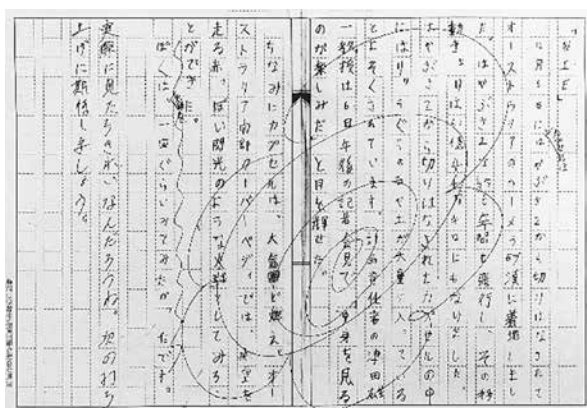 12月6日にはやぶさ2から切りはなされて
オーストラリアのウーメラ砂漠に着地しまし
た。はやぶさ2は六年間も飛行し、その移
動きょりは52億4千万キロにもなりました。
はやぶさ2から切りはなされたカプセルの中
にはりゅうぐうのすなや土が大量に入っている
とよそくされています。計画責任者の津田雄
一教授は6日午後の記者会見で、「中身を見る
のが楽しみだ。」と目を輝せた。
ちなみにカプセルは、大気圏で燃え、オー
ストラリア南部クーバーペディでは、夜空を
走る赤っぽい閃光のような火球としてみるこ
とができた。
ぼくは、一回ぐらいみてみたかったです。
実際に見たらきれいなんだろうね。次の打ち
上げに期待しましょう。